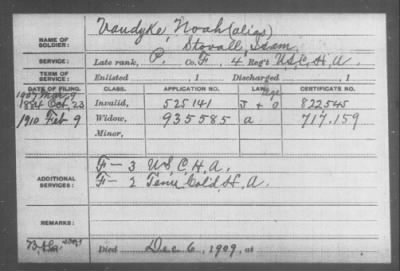 NAME OF SOLDIER: Vandyke, Noah (alias)
Stovall, Sam.
SERVICE: Late rank, P. Co. F, 4 Reg't U.S.C.H.A.
TERM OF SERVICE: Enlisted , 1 Discharged , 1
DATE OF FILING. CLASS. APPLICATION NO. LAW CERTIFICATE NO.
1907 Mar 9
1884 Oct. 23 Invalid, 525141 J + O 822545
1910 Feb 9 Widow, 935585 a 717.159
Minor,
ADDITIONAL SERVICES: F-3 U.S.C.H.A.
F-2 Tenn Cold. H.A.
REMARKS:
Died Dec 6, 1909, at